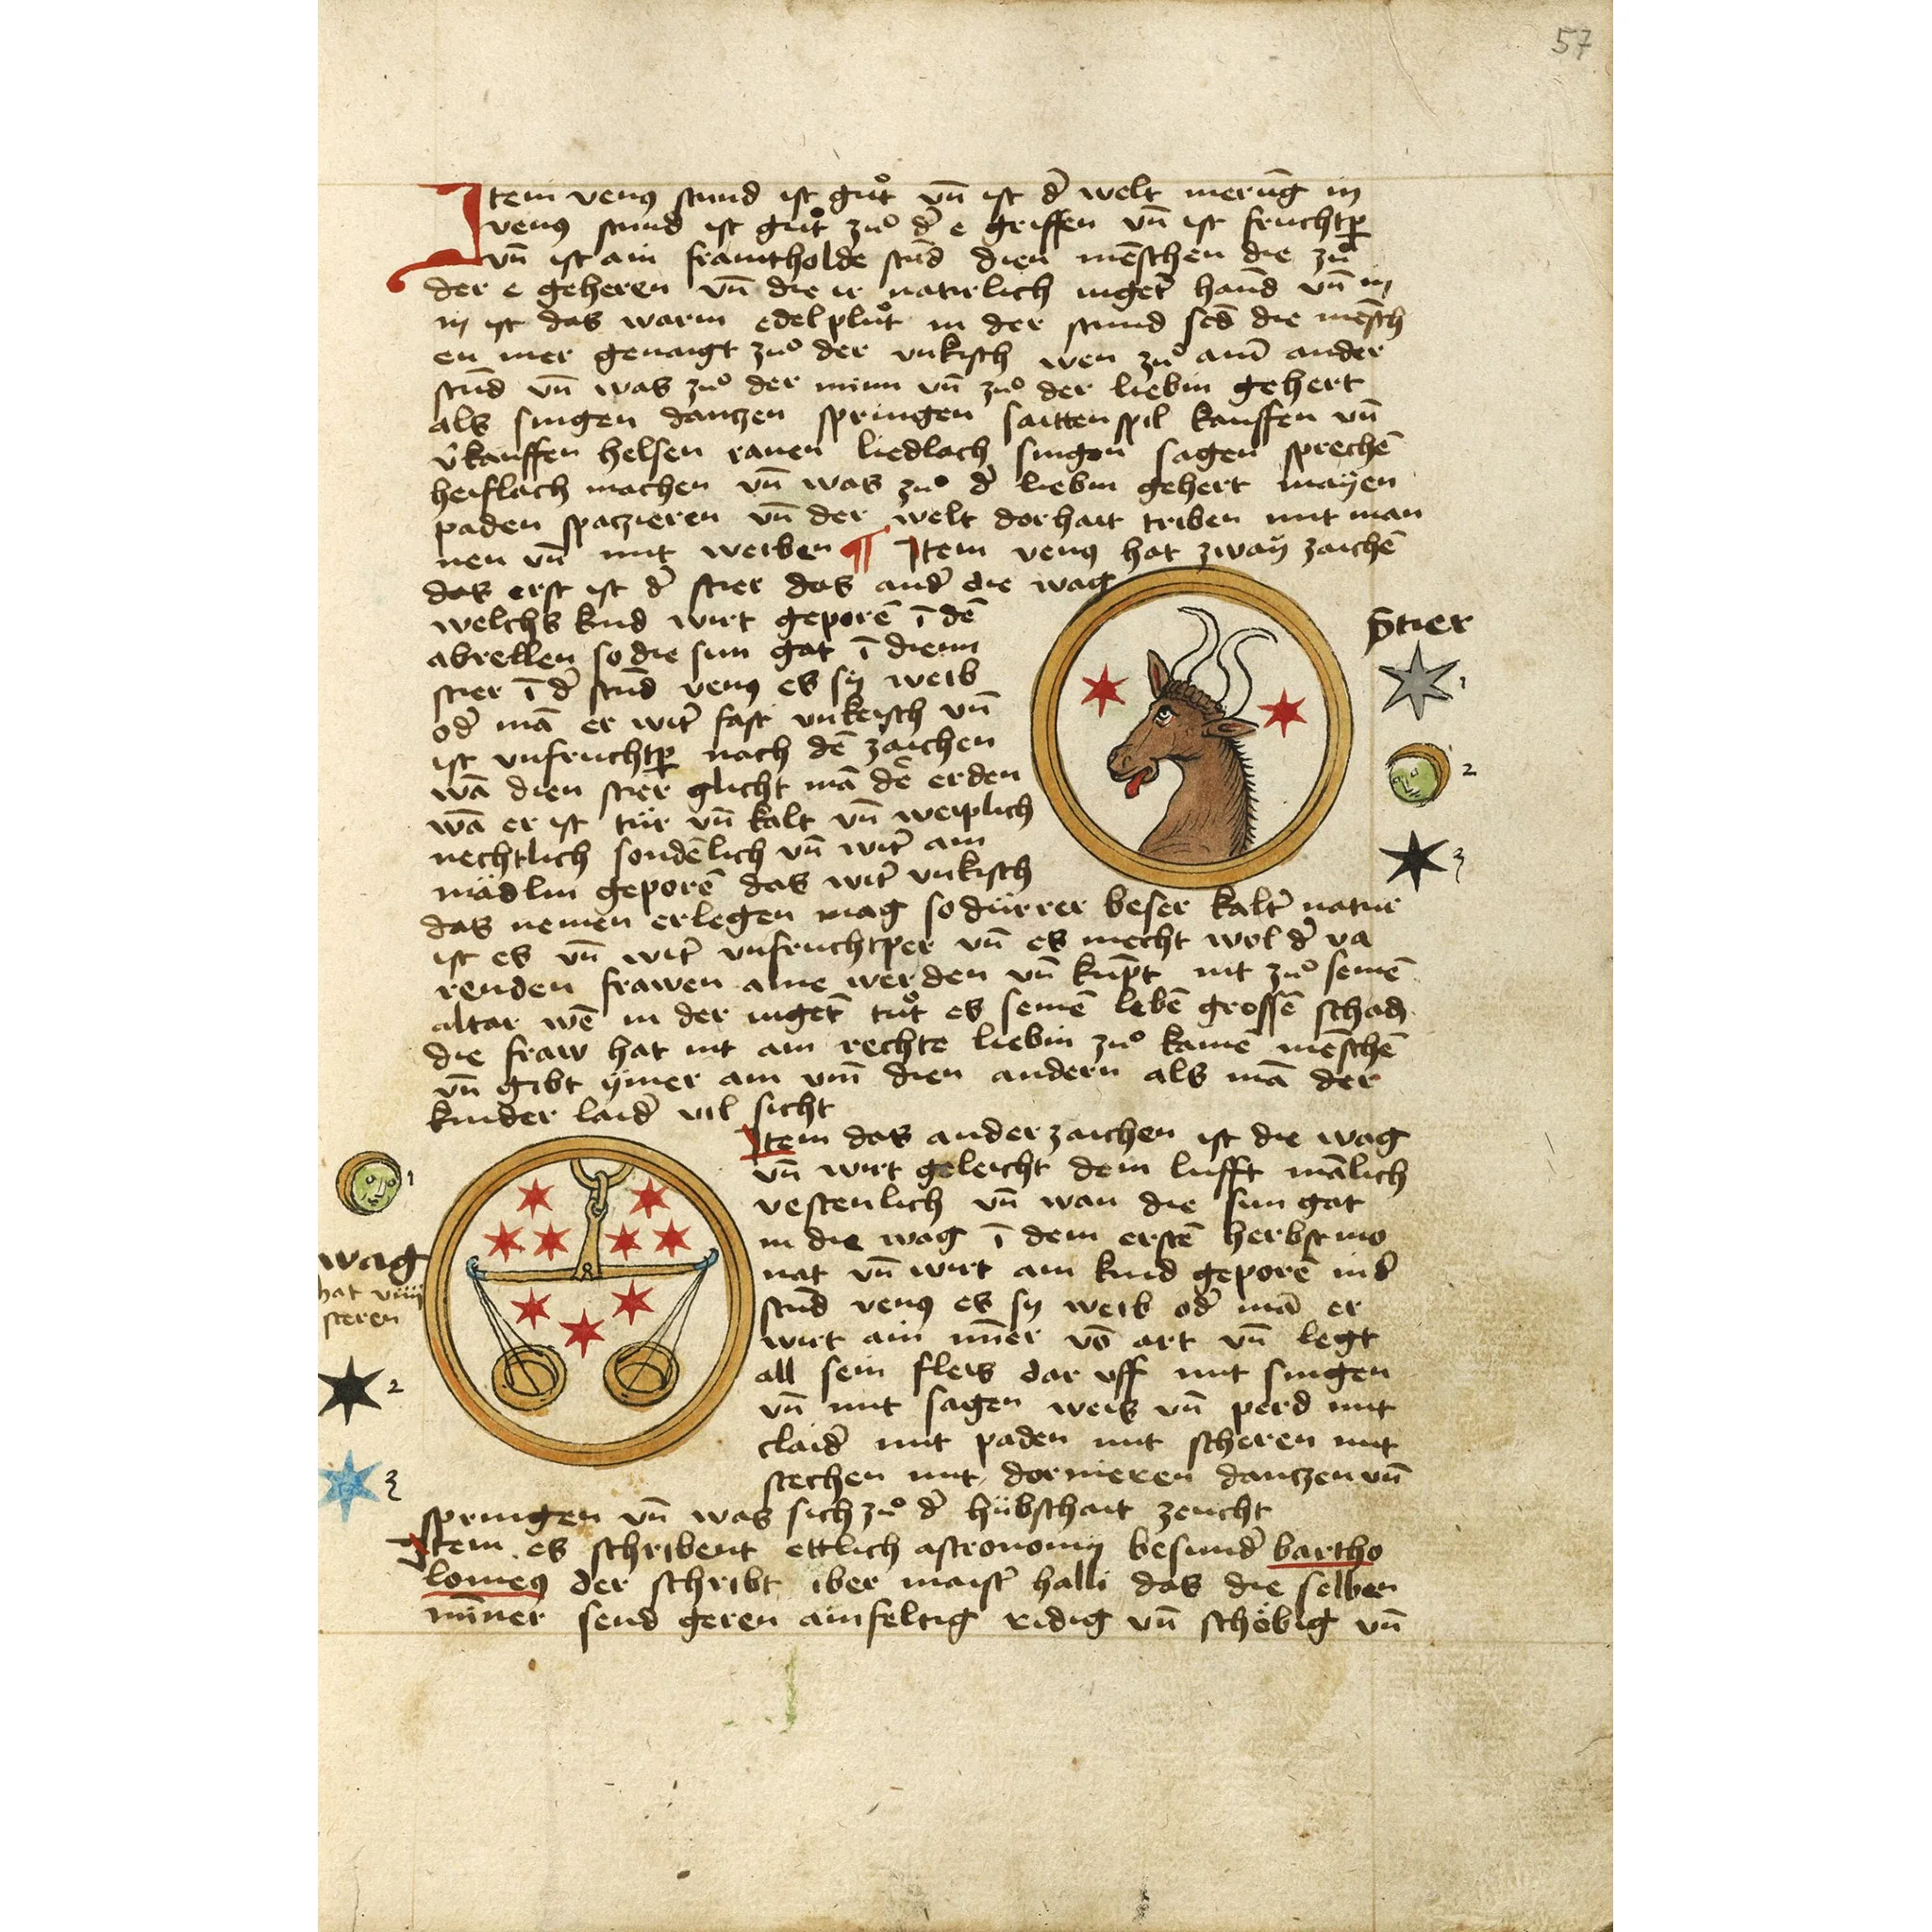 57
Item venꝯ stund ist guͦt vn̄ ist d̄ welt merūg in
venꝯ stund ist guͦt zuͦ d̄ e griffen vn̄ ist fruchtp̄
vn̄ ist ain framtholde stūd dien mēschen die zuͦ
der e geheren vn̄ die ir natirlich inget̄ hand vn̄ in
in ist das warm edel pluͦt in der stund sēd die mēsch
en mer genaigt zuͦ der vnkisch wen zuͦ am̄ ander
stūd vn̄ was zuͦ der minn vn̄ zuͦ der liebin gehert
als singen dantzen springen saitten spil kauffen vn̄
v̄kauffen helsen rauen liedlach singen sagen sprechē
heislach machen vn̄ was zuͦ d̄ liebin gehert mayen
paden spaczieren vn̄ der welt dorhait triben mit man
nen vn̄ mit weiben ¶ Item venꝯ hat zway zaichē
das erst ist d̄ stier das and̄ die wag
welchs kind wirt geporē ī dē
abrellen so die sun gat ī dienn
stier ī d̄ stūd venꝯ es sy weib
od̄ mā er wirt̄ fast vnkeisch vn̄
ist vnfruchtp̄ nach dē zaichen
wā dien stier glicht mā dē erden
wā er ist tür vn̄ kalt vn̄ weiplich
nechtlich sondēlich vn̄ wirt̄ ain
mädlin geporē das wirt̄ vnkisch
das nemen erlegen mag so dürrer beser kalt̄ natur
ist es vn̄ wirt̄ vnfruchtper vn̄ es mecht wol d̄ va
renden frawen aine werden vn̄ kūpt nit zuͦ seinē
altar wē in der inget̄ tuͦt es seinē lebē grossē schad
die fraw hat nit ain rechte liebin zuͦ kainē mēschē
vn̄ gibt ymer ain vm̄ dien andern als mā der
kinder laid̄ vil sicht
Stier
1
2
3
Item das ander zaichen ist die wag
vn̄ wirt geleicht dem lufft mālich
vestenlich vn̄ wan die sun gat
in die wag ī dem erstē herbst mo
nat vn̄ wirt ain kind geporē in d̄
stūd venꝯ es sy weib od̄ mā er
wirt ain min̄er vō art vn̄ legt
all sein fleis dar vff mit singen
vn̄ mit sagen weis vn̄ perd mit
claid̄ mit paden mit scheren mit
stechen mit dornieren dantzen vn̄
springen vn̄ was sich zuͦ d̄ hübschait zeucht
1
wag
hat viiij
steren
2
3
Item es schribent ettlich astronomy besund̄ bartho
lomeꝯ der schribt iber maist̄ halli das die selben
min̄er send geren ainfeltig ridig vn̄ schöbig vn̄